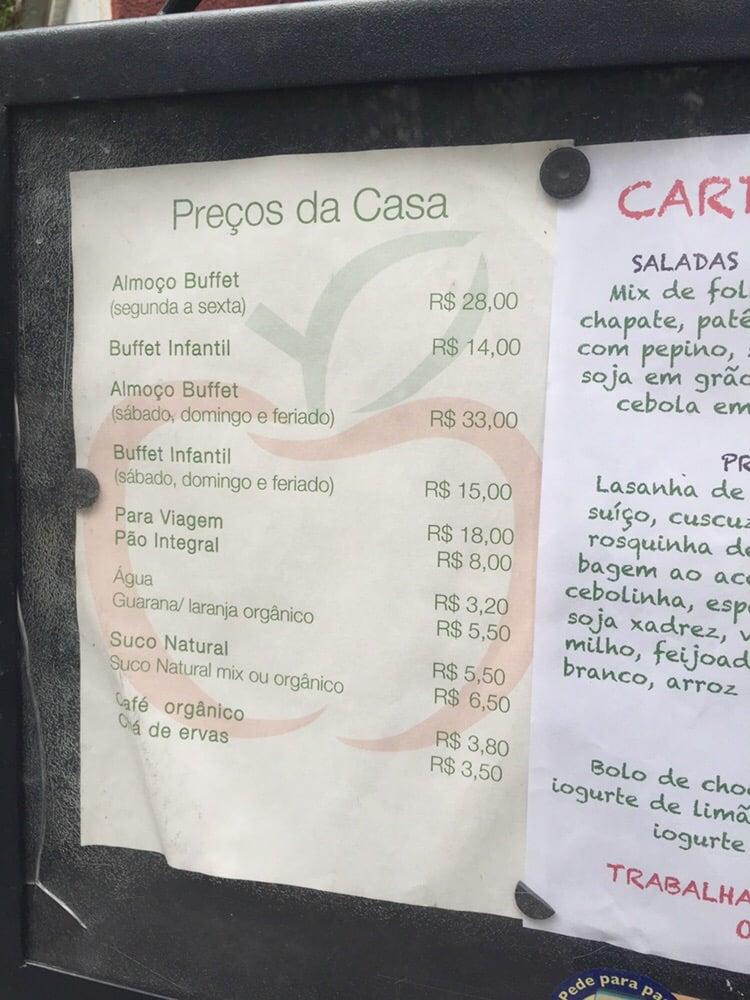 Preços da Casa
Almoço Buffet
(segunda a sexta) R$ 28,00
Buffet Infantil R$ 14,00
Almoço Buffet
(sábado, domingo e feriado) R$ 33,00
Buffet Infantil
(sábado, domingo e feriado) R$ 15,00
Para Viagem R$ 18,00
Pão Integral R$ 8,00
Água R$ 3,20
Guarana/ laranja orgânico R$ 5,50
Suco Natural R$ 5,50
Suco Natural mix ou orgânico R$ 6,50
Café orgânico R$ 3,80
Chá de ervas R$ 3,50
CART
SALADAS
Mix de fol
chapate, patê
com pepino,
soja em grão
cebola em
PR
Lasanha de
suíço, cuscuz
rosquinha de
bagem ao
cebolinha, esp
soja xadrez,
milho, feijoad
branco, arroz
Bolo de choc
iogurte de limã
iogurte
TRABALHA
Pede para pa